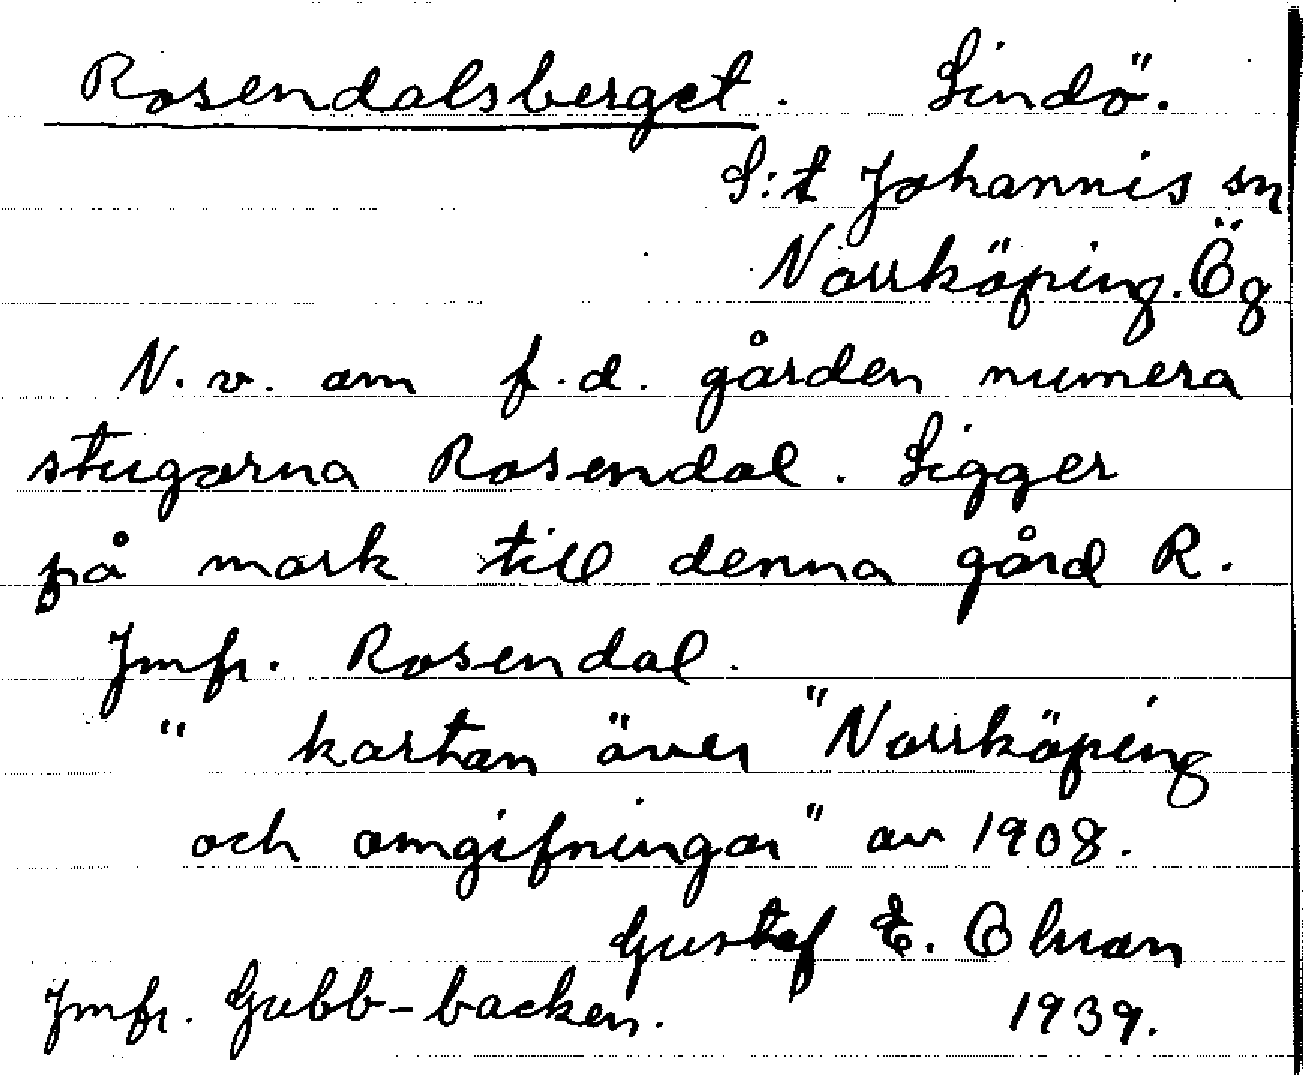 Rosendalsberget. Lindö.
S:t Johannis sn
Norrköping. Ög
N.v. om f.d. gården numera
stugorna Rosendal. Ligger
på mark till denna gård R.
Jmfr. Rosendal.
" kartan över "Norrköping
och omgifningar" av 1908.
Gustaf E. Ohman
Jmfr. Gubb-backen. 1939.